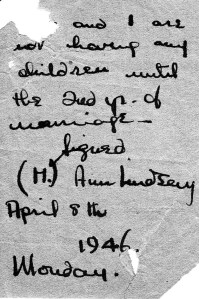 and I are
not having any
children until
the 2nd yr. of
marriage —
Signed
(H.) Ann Lindsay
April 8th
1946.
Monday.